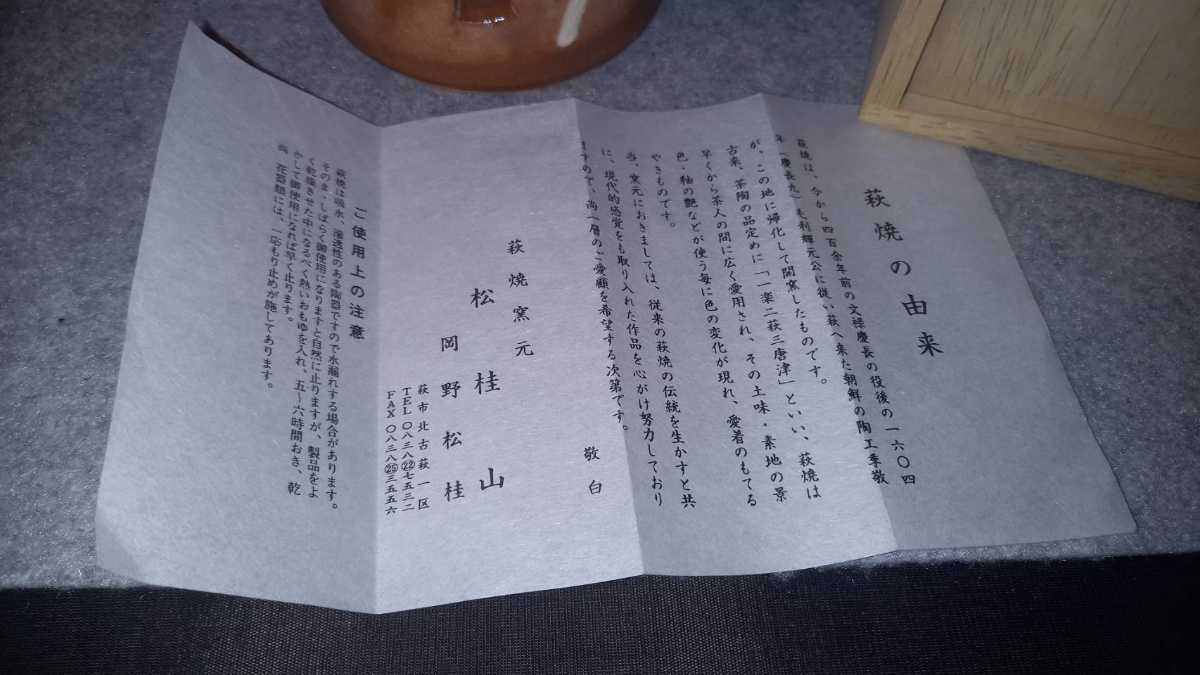 萩焼の由来
萩焼は、今から四百余年前の文禄慶長の役後の一六〇四
年(慶長九)毛利輝元公に従い萩へ来た朝鮮の陶工李敬
が、この地に帰化して開窯したものです。
古来、茶陶の品定めに「一楽二萩三唐津」といい、萩焼は
早くから茶人の間に広く愛用され、その土味・素地の景
色・釉の艶などが使う毎に色の変化が現れ、愛着のもてる
やきものです。
当、窯元におきましては、従来の萩焼の伝統を生かすと共
に、現代的感覚をも取り入れた作品を心がけ努力しており
ますので、尚一層のご愛顧を希望する次第です。
敬白
萩焼窯元
松桂山
岡野松桂
萩市北古萩一区
TEL〇八三八㉒七五三二
FAX〇八三八㉕三五五六
ご使用上の注意
萩焼は吸水、浸透性のある陶器ですので水漏れする場合があります。
そのまゝしばらく御使用になりますと自然に止りますが、製品をよ
く乾燥させた中になるべく熱いおもゆを入れ、五〜六時間おき、乾
かして御使用になれば早く止ります。
尚、花器類には、一応もり止めが施してあります。